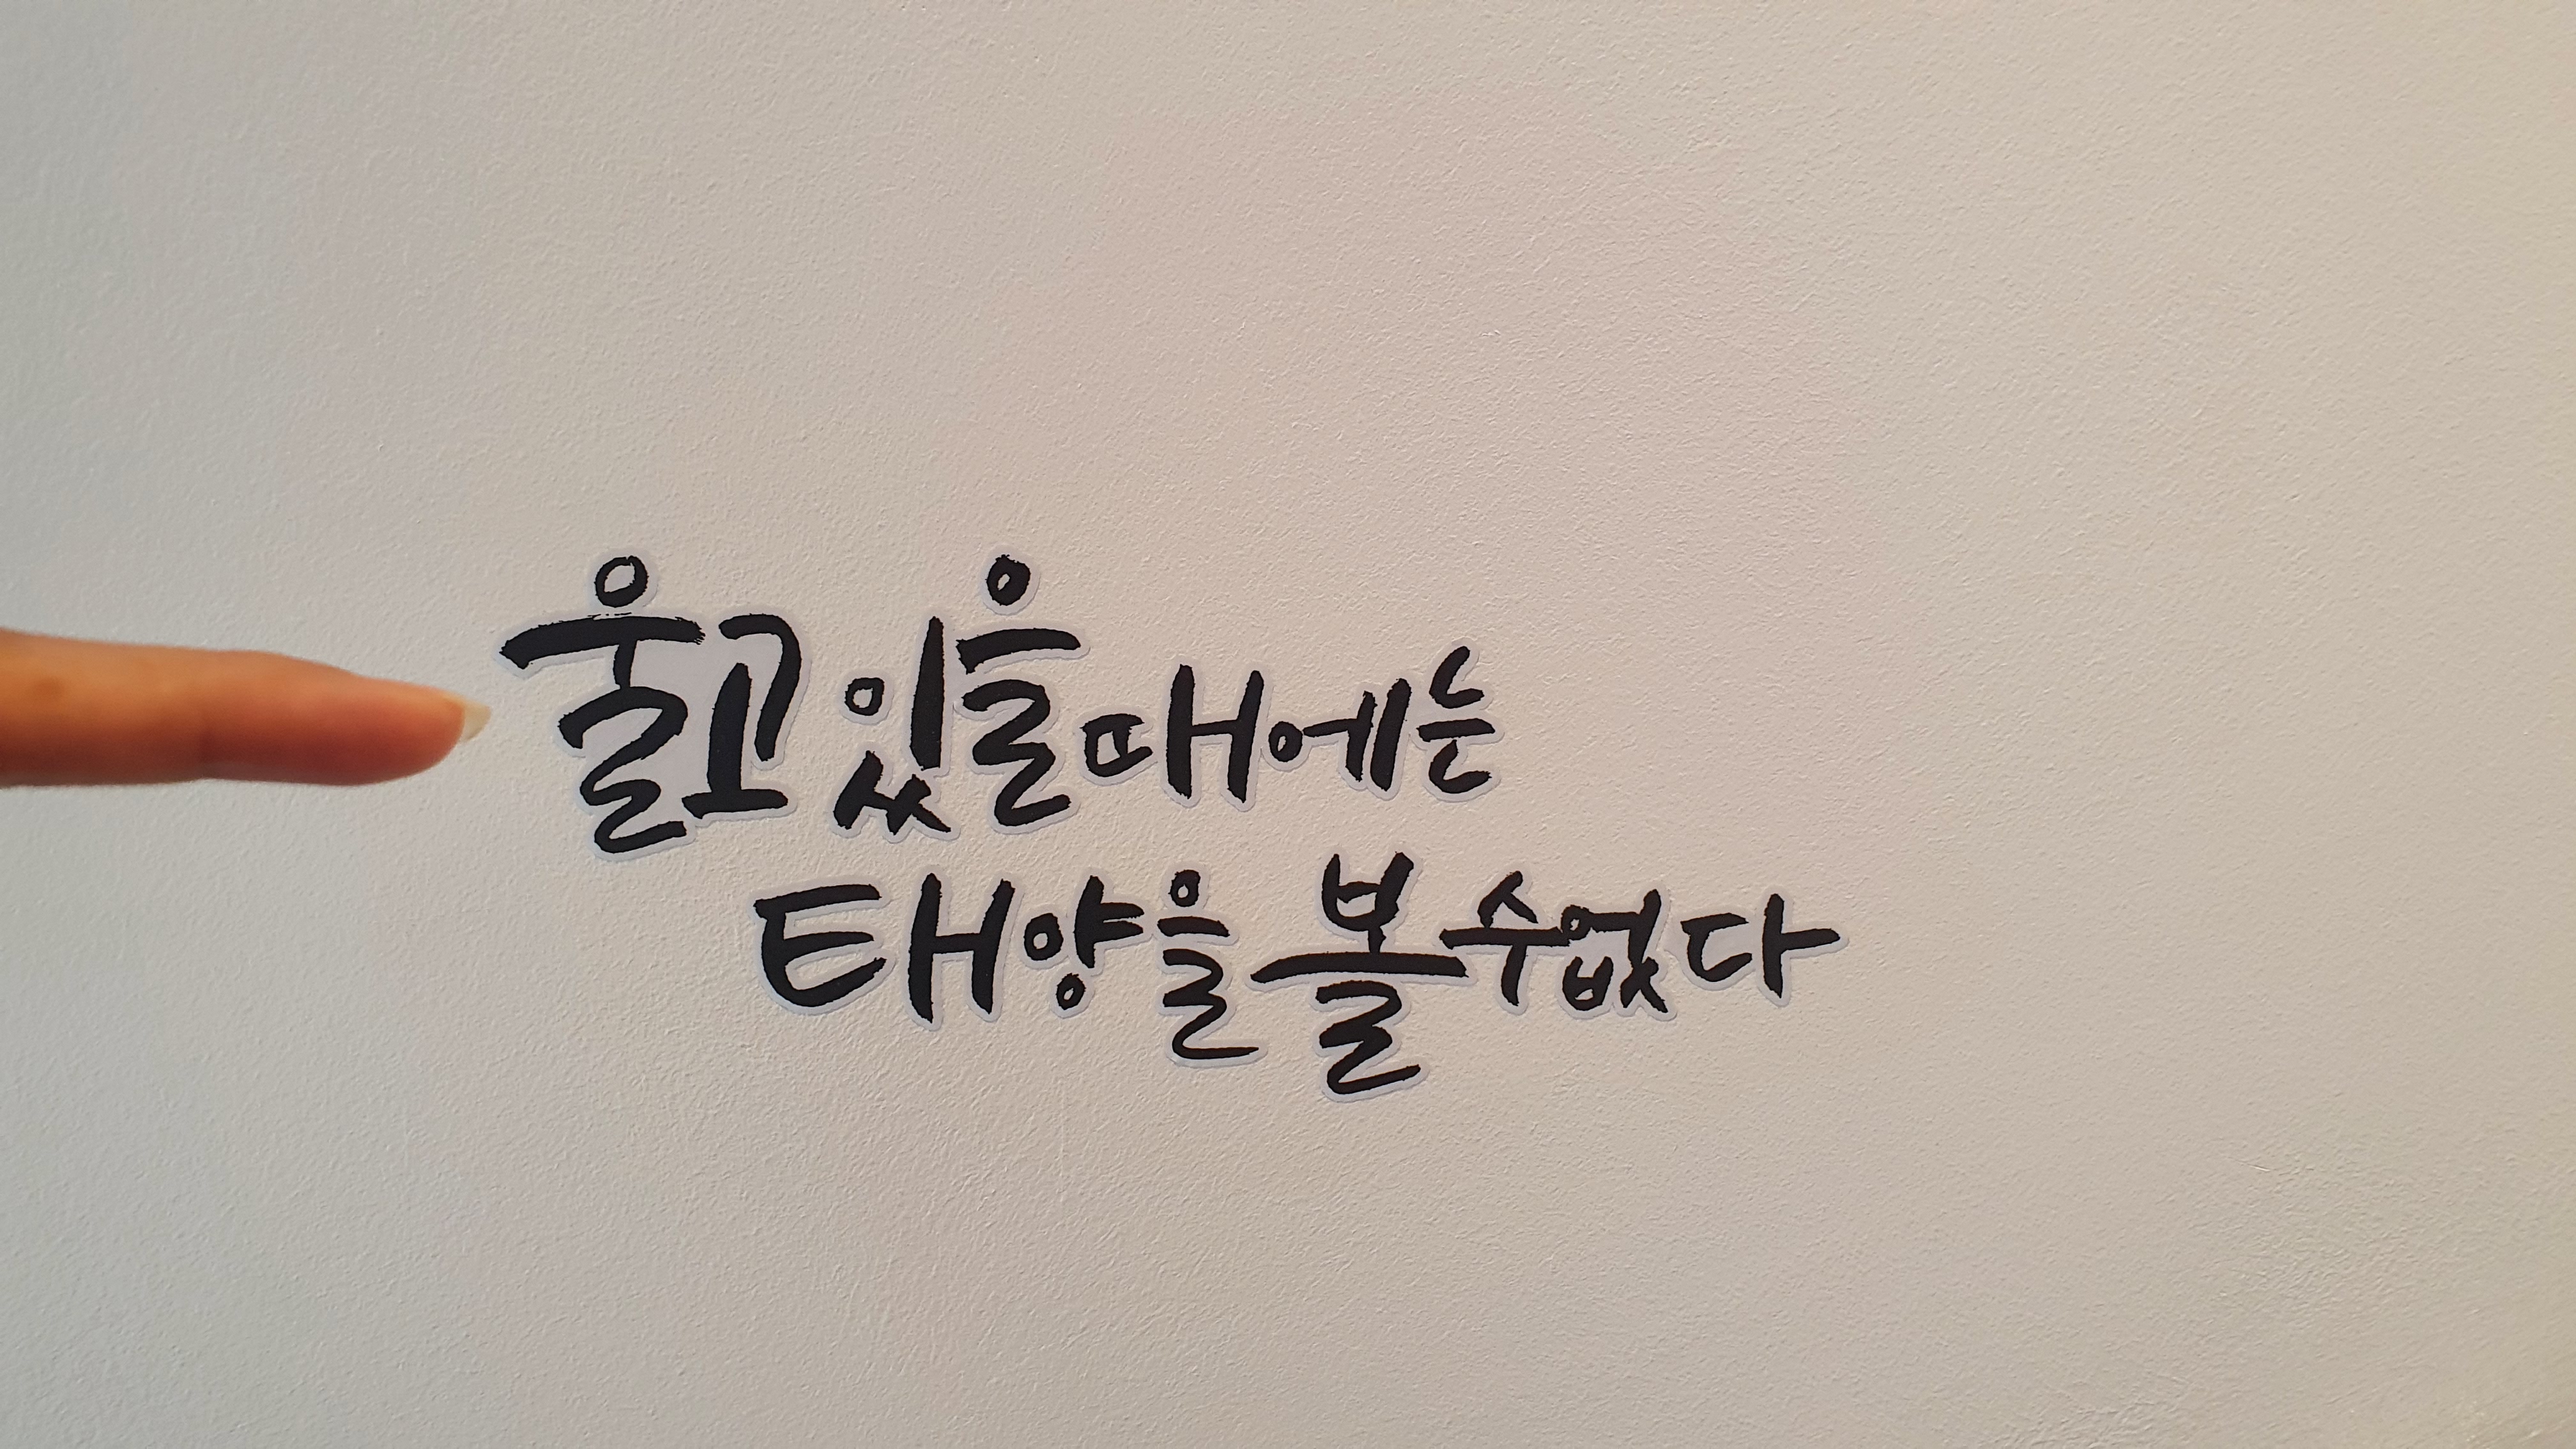 울고 있을때에는
태양을 볼 수 없다